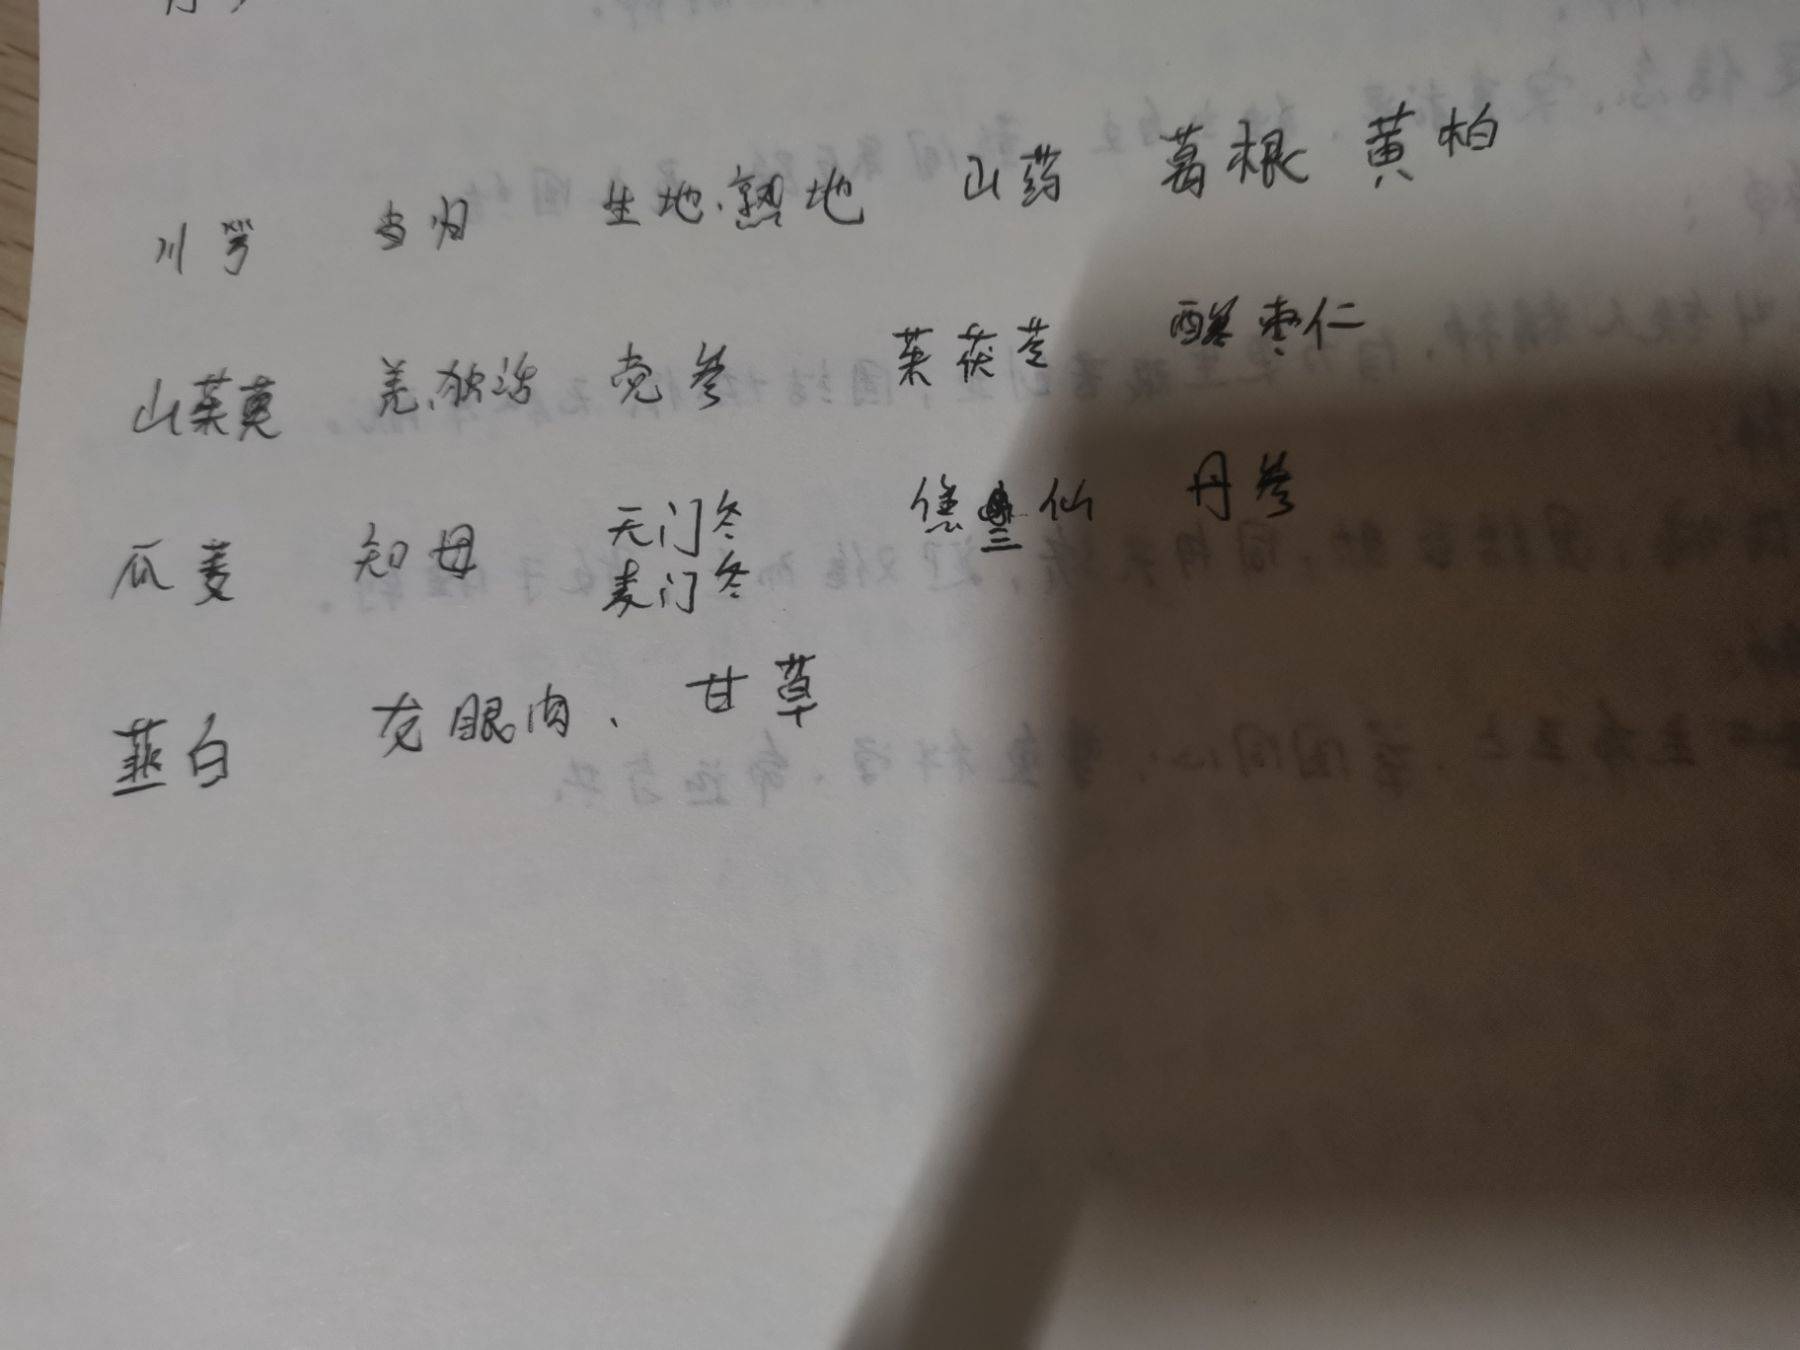 川芎 当归 生地、熟地 山药 葛根 黄柏
山茱萸 羌、独活 党参 茱茯苓 酸枣仁
瓜蒌 知母 天门冬 焦三仙 丹参
麦门冬
薤白 龙眼肉、甘草